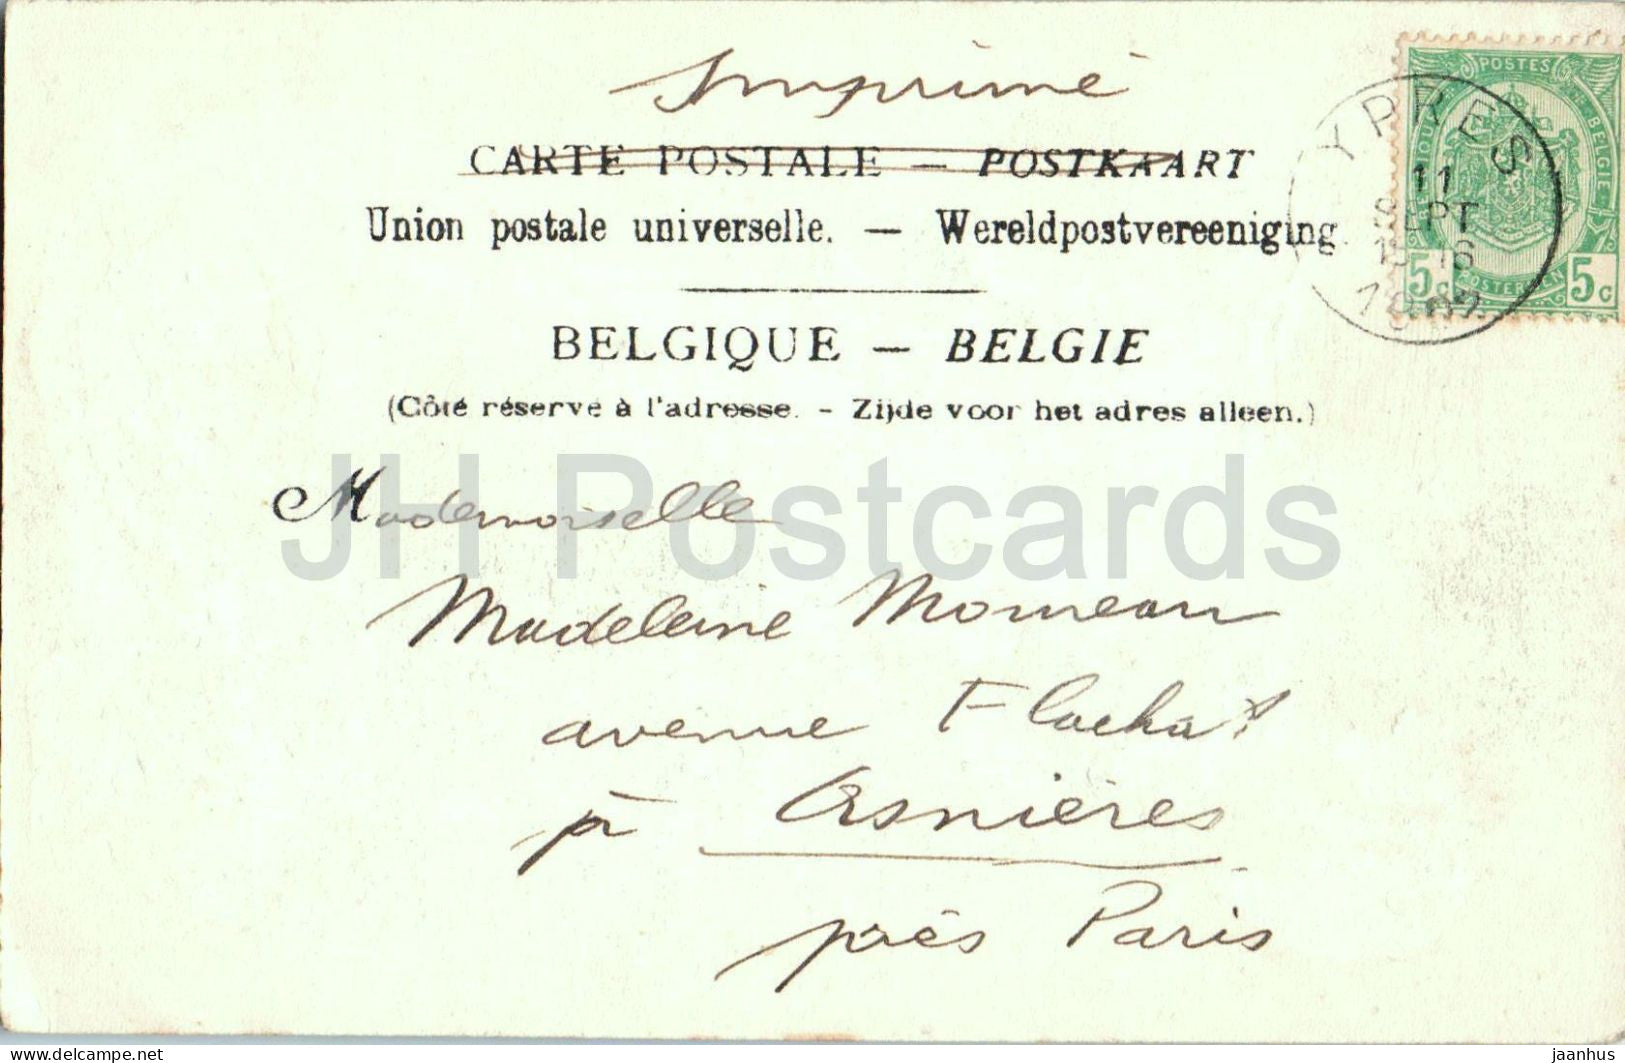 Imprimé
CARTE POSTALE — POSTKAART
Union postale universelle. — Wereldpostvereeniging.
BELGIQUE — BELGIE
(Côté réservé à l'adresse. - Zijde voor het adres alleen.)
Mademoiselle
Madeleine Momeau
avenue Flachat
à Asnières
près Paris
POSTES
BELGIE
5c 5c
POSTERIJEN
YPRES
11
SEPT
15-16
JH Postcards
www.delcampe.net
jaanhus